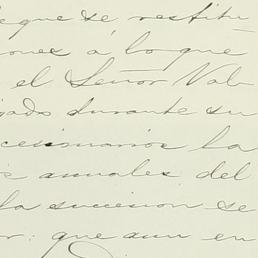 que se restitu
ones á lo que
el Señor Val
gado durante su
cesionarios la
s anuales del
la sucesion se
or: que aun en